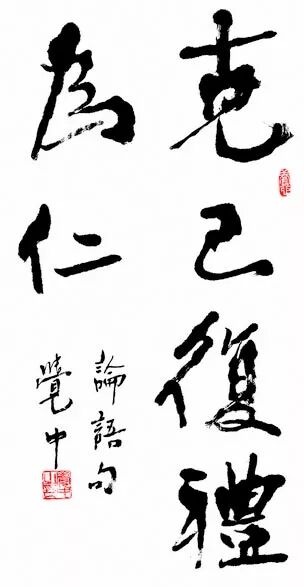 克己復禮
為仁
論語句
覺中